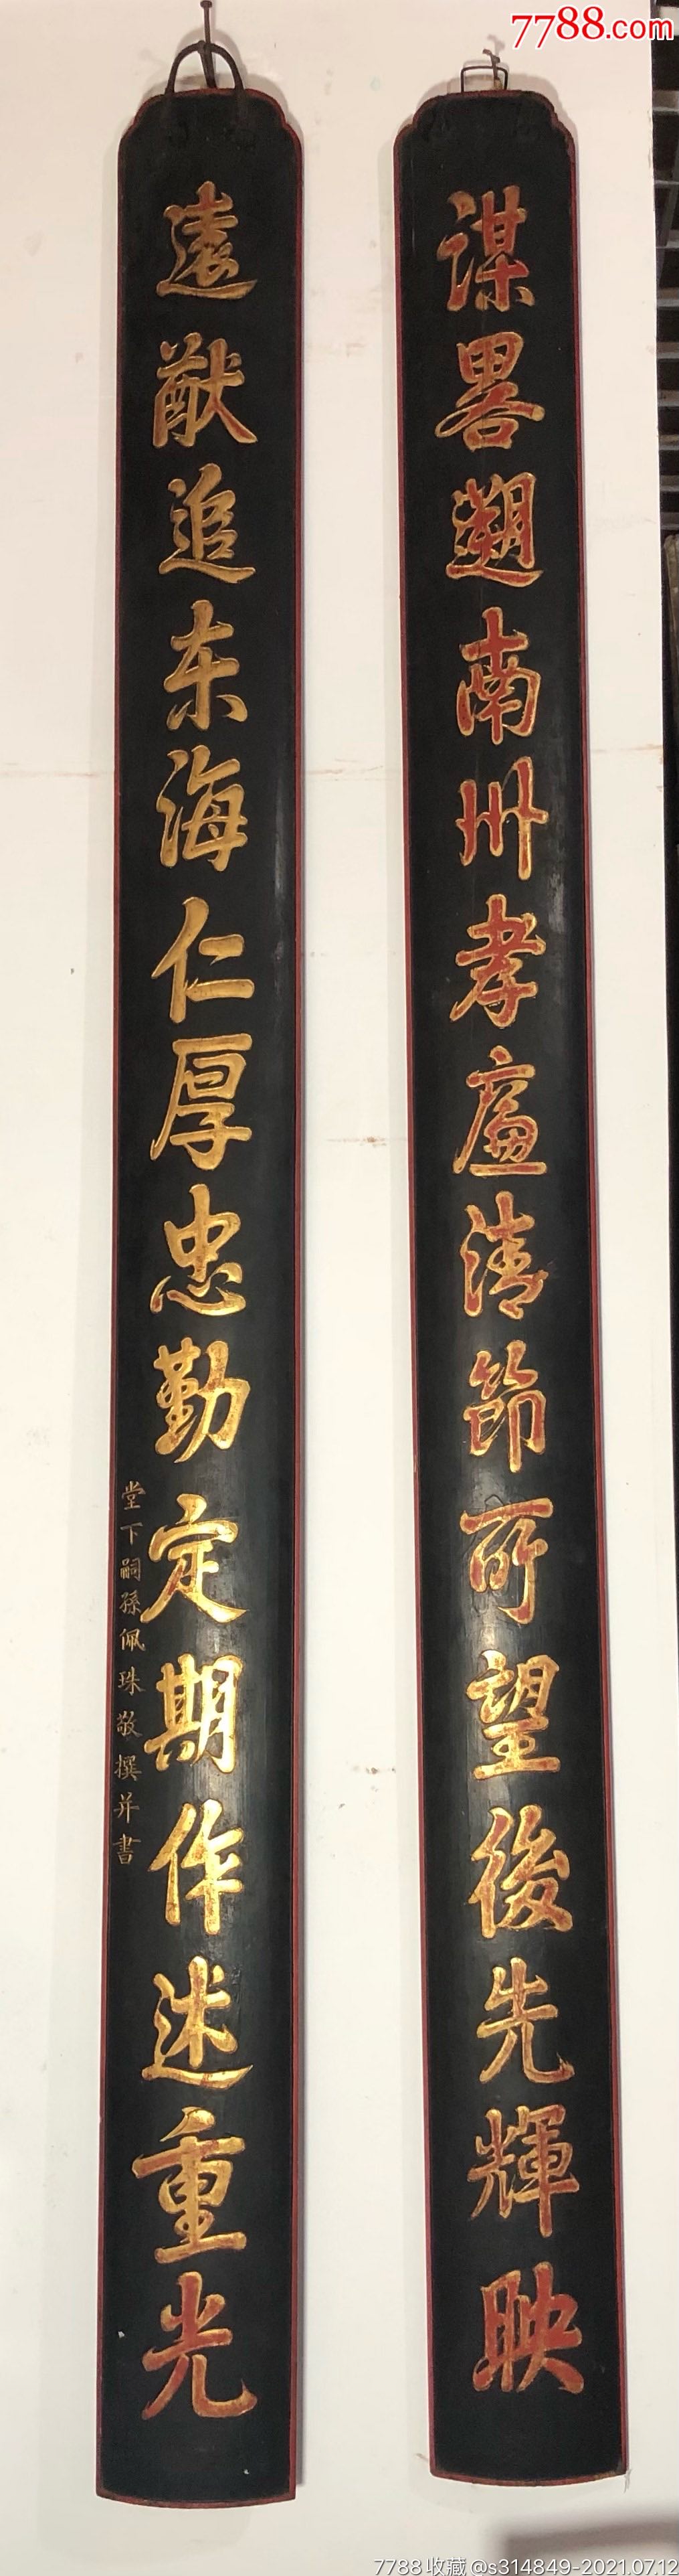 7788.com
謀畧遡南州孝廉清節所望後先輝映
遠猷追东海仁厚忠勤定期作述重光
堂下嗣孫佩珠敬撰并書
7788收藏@s314849-2021.07.12